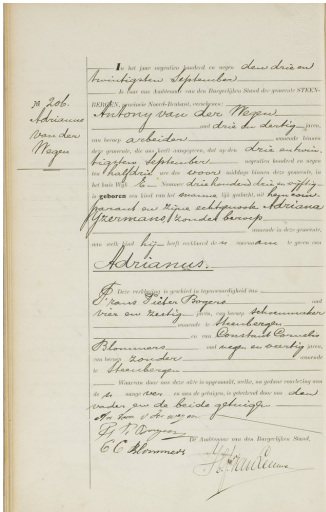 No 206.
Adrianus
van der
Wegen
In het jaar negentien honderd en negen den drie en
twintigsten September
is voor ons Ambtenaar van den Burgerlijken Stand der gemeente STEEN-
BERGEN, provincie Noord-Brabant, verschenen:
Antony van der Wegen
oud drie en dertig jaren,
van beroep arbeider wonende binnen
deze gemeente, die ons heeft aangegeven, dat op den drie en twin-
tigsten september negentien honderd en negen
ten half drie ure des voor middags binnen deze gemeente, in
het huis Wijk E Nummer driehonderd drie en vijftig
is geboren een kind van het mannelijk geslacht, uit hem com-
parant en zijne echtgenoote Adriana
IJzermans, zonder beroep
wonende in deze gemeente,
aan welk kind hij heeft verklaard de voornaam te geven van
Adrianus.
Deze verklaring is geschied in tegenwoordigheid van
Frans Pieter Bogers oud
vier en zestig jaren, van beroep schoenmaker
wonende te Steenbergen
en van Constant Cornelis
Blommers oud negen en veertig jaren,
van beroep zonder wonende
te Steenbergen
Waarvan door ons deze akte is opgemaakt, welke, na gedane voorlezing aan
de aangever en aan de getuigen, is geteekend door ons den
vader en de beide getuigen
v der wegen
Bogers
C C Blommers
De Ambtenaar van den Burgerlijken Stand,